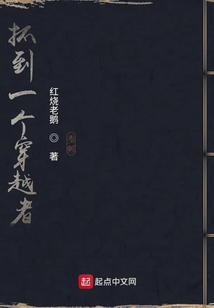 抓到一个穿越者
红烧老鹅 ◎ 著
起点中文网